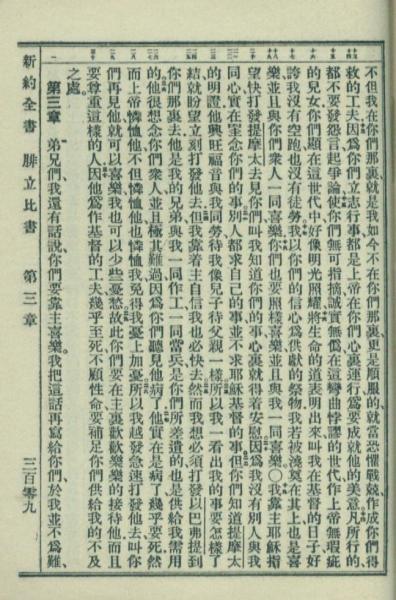 不但我在你們那裏就是我如今不在你們那裏更是順服的就當恐懼戰兢作成你們得
救的工夫因爲你們立志行事都是上帝在你們心裏運行爲要成就他的美意凡所行的
都不要發怨言起爭論使你們無可指摘誠實無僞在這彎曲悖謬的世代作上帝無瑕疵
的兒女你們顯在這世代中好像明光照耀將生命的道表明出來叫我在基督的日子好
誇我沒有空跑也沒有徒勞我以你們的信心爲供獻的祭物我若被澆奠在其上也是喜
樂並且與你們衆人一同喜樂你們也要照樣喜樂並且與我一同喜樂○我靠主耶穌指
望快打發提摩太去見你們叫我知道你們的事心裏就得着安慰因爲我沒有別人與我
同心實在罣念你們的事別人都求自己的事並不求耶穌基督的事但你們知道提摩太
的明證他興旺福音與我同勞待我像兒子待父親一樣所以我一看出我的事要怎樣了
結就盼望立刻打發他去但我靠着主自信我也必快去然而我想必須打發以巴弗提到
你們那裏去他是我的兄弟與我一同作工一同當兵是你們所差遣的也是供給我需用
的他很想念你們衆人並且極其難過因爲你們聽見他病了他實在是病了幾乎要死然
而上帝憐恤他不但憐恤他也憐恤我免得我憂上加憂所以我越發急速打發他去叫你
們再見他就可以喜樂我也可以少些憂愁故此你們要在主裏歡歡樂樂的接待他而且
要尊重這樣的人因他爲作基督的工夫幾乎至死不顧性命要補足你們供給我的不及
之處
第三章 弟兄們我還有話說你們要靠主喜樂我把這話再寫給你們於我並不爲難
新約全書 腓立比書 第三章 三百零九